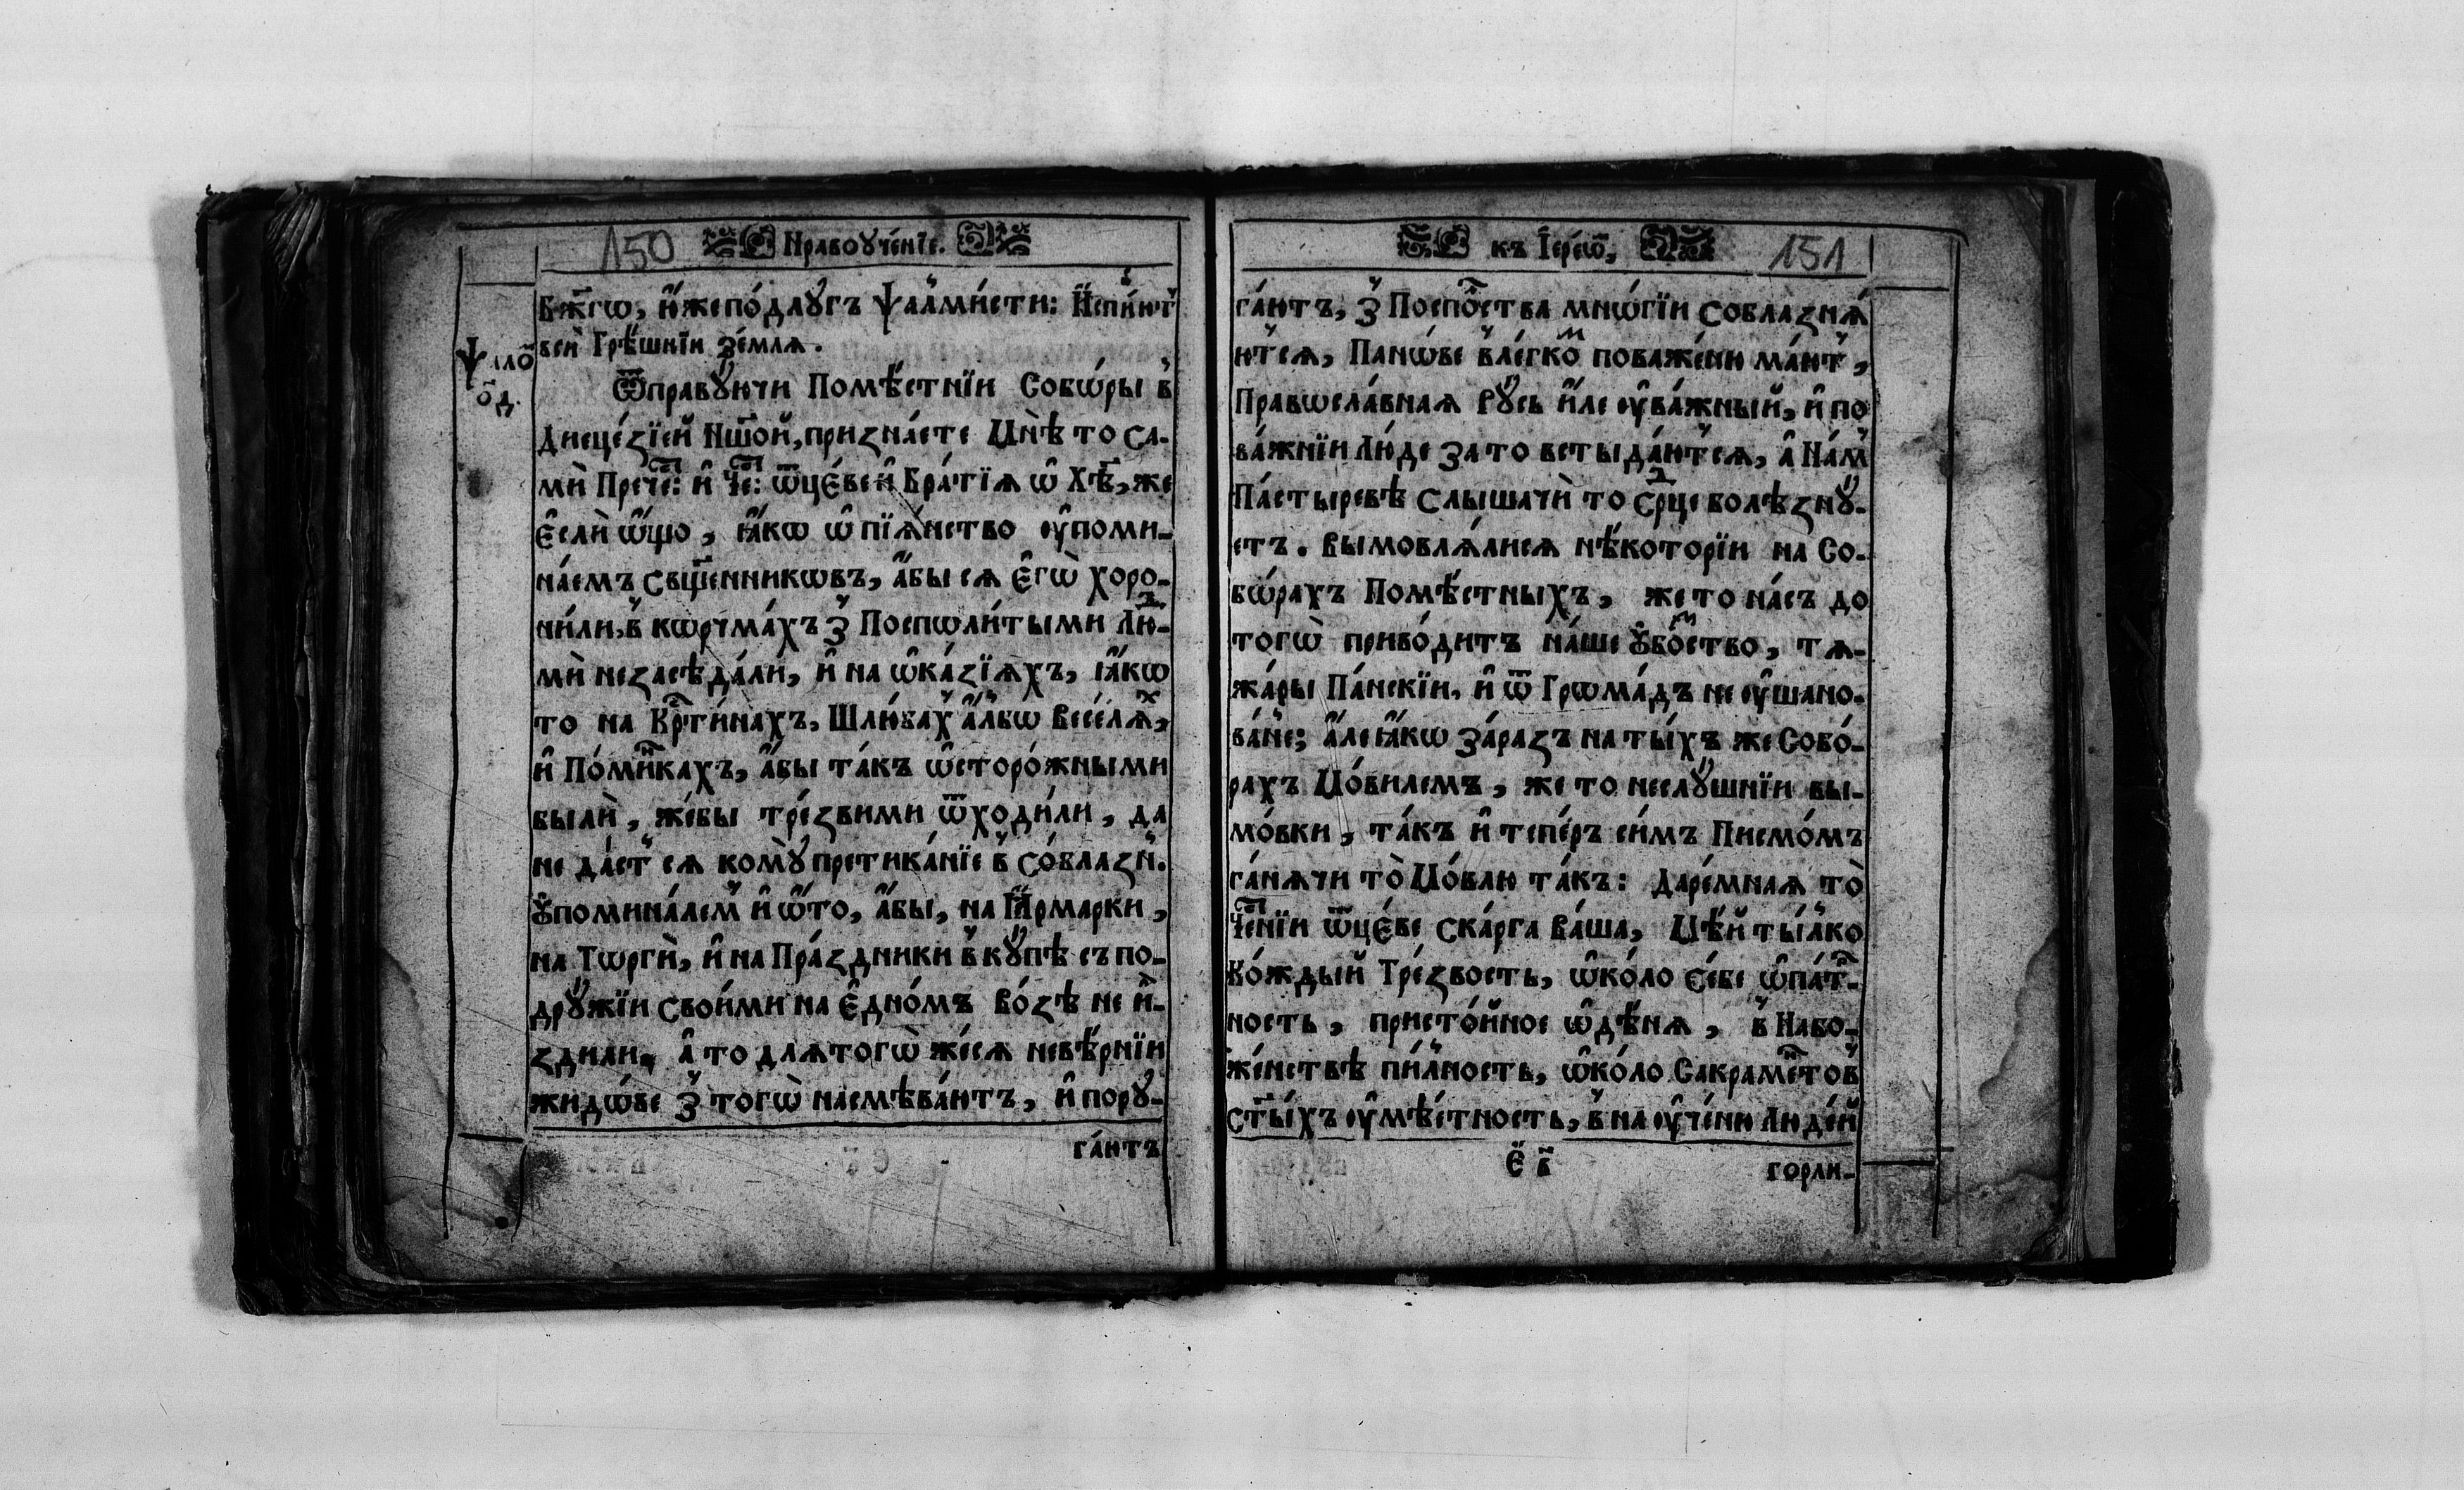 150 Нравоꙋче́нїе.
Бж҃гѡ, и҆́же по́длꙋгъ Ѱалми́сти: И҆спїю́тъ
вси́ Грѣ́шнїи Земля̀.
Ѱало
о҃д.
Ѿправꙋ́ючи Помѣ́стнїи Собѡ́ры в̾
Диеце́зїей Нш҃ой, призна́ете Мнѣ̀ то са-
мѝ Пречⷭ҇: и҆ Чⷭ҇: ѿце́ве и҆ Бра́тїѧ ѡ҆ Хѣ҃, же
є҆слѝ ѡ҆́що, ꙗ҆́кѡ ѡ҆ пїѧ́нство ѹ҆поми-
на́емъ сщ҃енникѡвъ, а҆́бы сѧ є҆гѡ̀ хоро-
ни́ли, в̾ кѡрчма́хъ з̾ Посполи́тыми Лю-
мѝ незасѣда́ли, и҆ на ѡ҆ка́зїѧхъ, ꙗ҆́кѡ
то на Крⷭ҇ти́нахъ, Шлю́бах̾ а҆́лбѡ Весе́лѧⷯ,
и҆ По́минкахъ, а҆́бы та́къ ѡ҆сторо́жными
былѝ, же́бы тре́звими ѿходи́ли, да
не да́ст̾ сѧ комꙋ̀ претика́нїе в̾ со́блазн̾.
Ꙋ҆помина́лем̾ и҆ ѡ҆́то, а҆́бы, на Ꙗ҆́рмарки,
на Тѡргѝ, и҆ на Пра́здники в̾кꙋ́пѣ съ по-
дрꙋ́жїи свои́ми на є҆дно́мъ во́зѣ не и҆-
здили, а҆ то длѧтогѡ̀ же́сѧ невѣ́рнїи
жидѡ́ве з̾ тогѡ̀ насмѣва́ютъ, и҆ порꙋ-
га́ютъ
къ І҆ере́ѡⷨ, 151
га́ютъ, з̾ Поспо́лства мнѡ́гїи соблазнѧ́
ют̾сѧ, Панѡ́ве в̾ле́гкоⷨ поваже́ню ма́ют̾,
Правѡсла́внаѧ Рꙋ́сь и҆́ле ѹ҆ва́жный, и҆ по
ва́жнїи Лю́де зато встыда́ют̾сѧ, а҆ На́м̾
Па́стыревѣ слы́шачѝ то се́рⷣце болѣзнꙋ́-
етъ. Вымовлѧ́лисѧ нѣ́которїи на Со-
бѡ́рахъ Помѣ́стныхъ, же то на́съ до
тогѡ̀ приво́дитъ на́ше ꙋ҆бо́ⷤство, тѧ-
жа́ры Па́нскїи, и҆ ѿ Грѡма́дъ не ѹ҆шано-
ва́нⷷ; а҆́ле ꙗ҆́кѡ за́разъ на ты́хъ же Собо́-
рахъ Мо́вилемъ, же то неслꙋ́шнїи вы-
мо́вки, та́къ и҆ тепе́ръ си́мъ Писмо́мъ
га́нѧчи то̀ Мо́влю та́къ: Даре́мнаѧ то̀
Чⷭ҇нїи ѿце́ве ска́рга ва́ша, Мѣ́й ты́лко
ко́ждый Тре́звость, ѡ҆ко́ло се́бе ѡ҆па́тр-
ность, присто́йное ѡ҆дѣ́нѧ, в̾ Набо-
же́нствѣ пи́лность, ѡ҆ко́ло Сакраме́нтов̾
ст҃ы́хъ ѹ҆мѣ́єтность, в̾ на ѹ҆че́ню Люде́й
Є҆ в҃
горли-